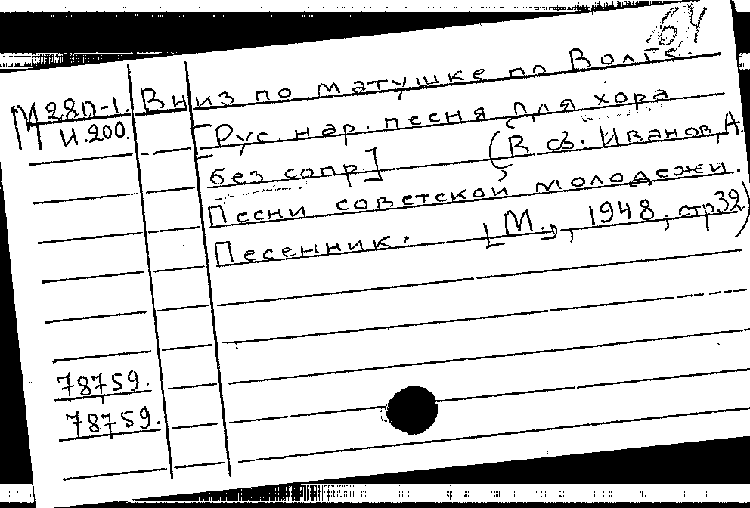 64
М28п-1. Вниз по матушке по Волге.
И.200. [Рус. нар. песня для хора
без сопр.] (В сб. Иванов, А.
Песни советской молодежи.
Песенник. [М.], 1948, стр.32)
78759.
78759.